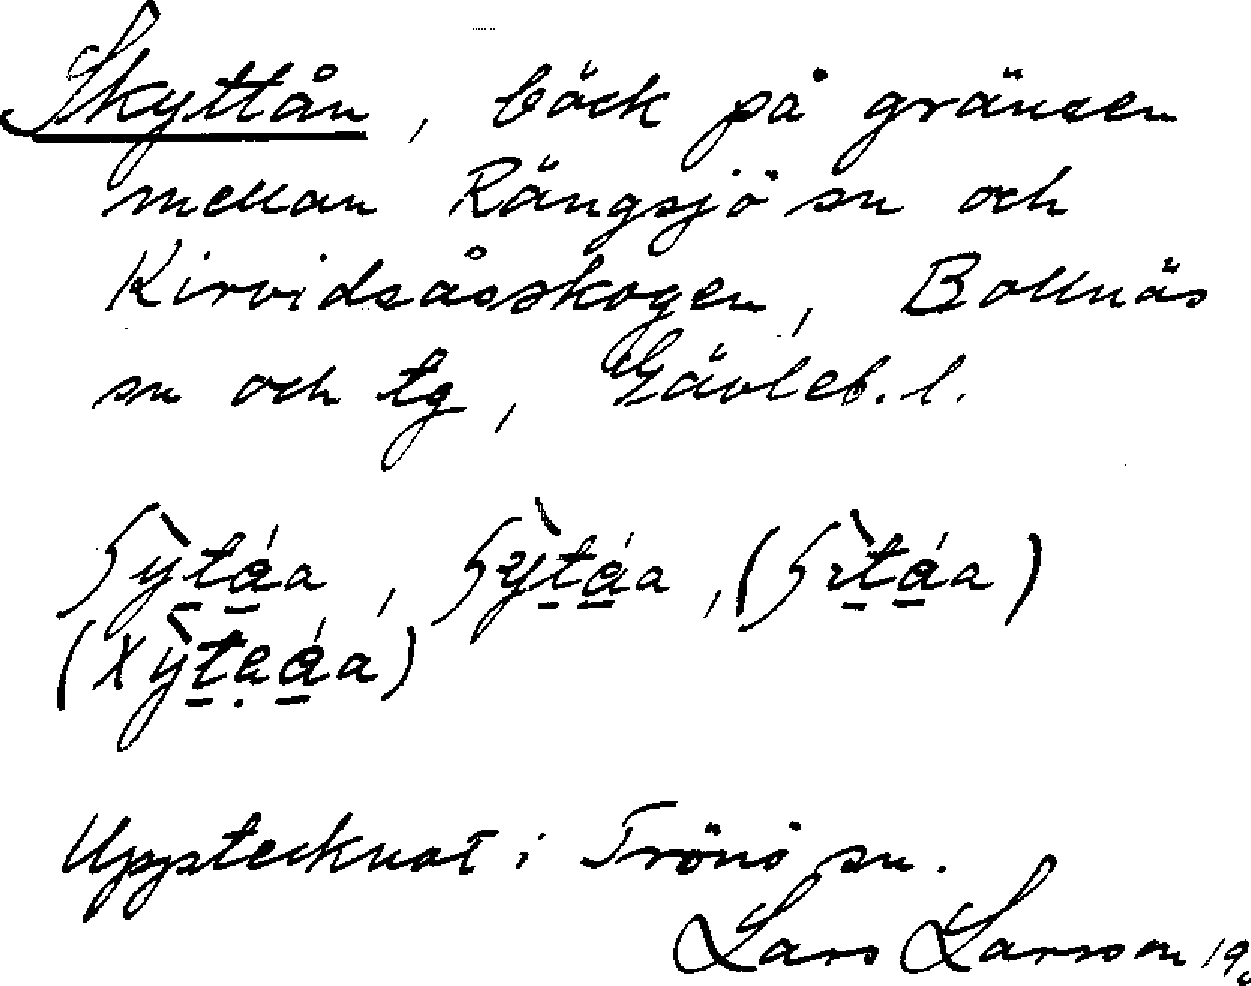 Skyttån, bäck på gränsen
mellan Rängsjö sn och
Kirvidsåsskogen, Bollnäs
sn och tg, Gävleb. l.
Upptecknat i Trönö sn.
Lars Larsson 19